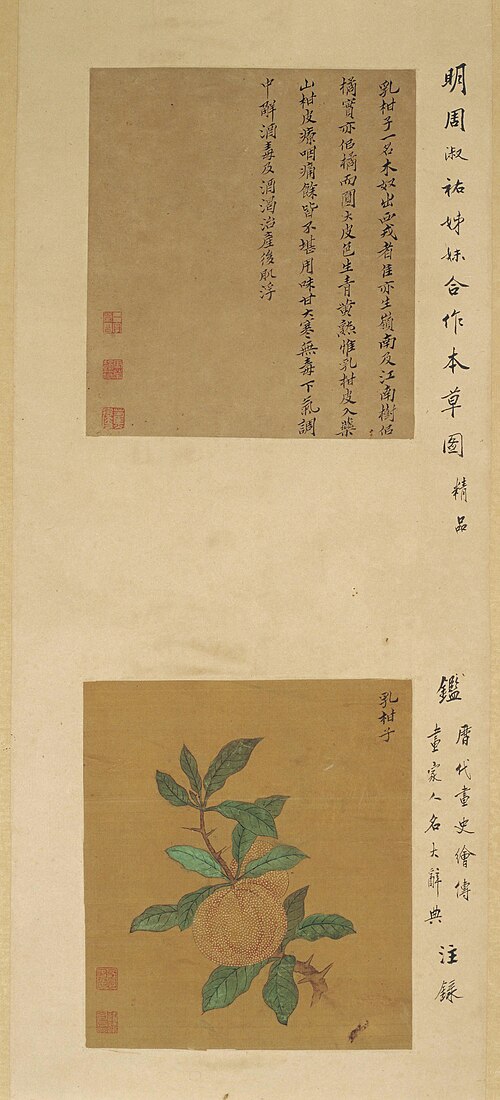 明周淑祐姊妹合作本草图精品
乳柑子一名木奴出西戎者佳亦生嶺南及江南樹佀
橘實亦佀橘而圓大皮色生青黄熟惟乳柑皮入藥
山柑皮療咽痛餘皆不堪用味甘大寒無毒下氣調
中解酒毒及酒渴治產後肌浮
鑑
曆代畫史繪傳
畫家人名大辭典
注錄
乳柑子